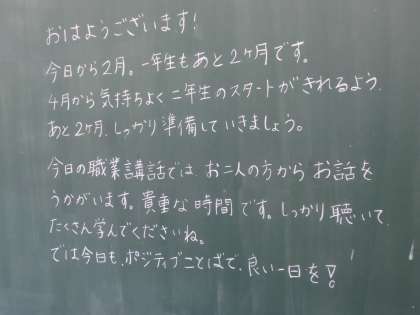 おはようございます!
今日から2月。一年生もあと2ヶ月です。
4月から気持ちよく二年生のスタートがきれるよう、
あと2ヶ月、しっかり準備していきましょう。
今日の職業講話では、お二人の方からお話を
うかがいます。貴重な時間です。しっかり聴いて、
たくさん学んでくださいね。
では今日も、ポジティブことばで、良い一日を!